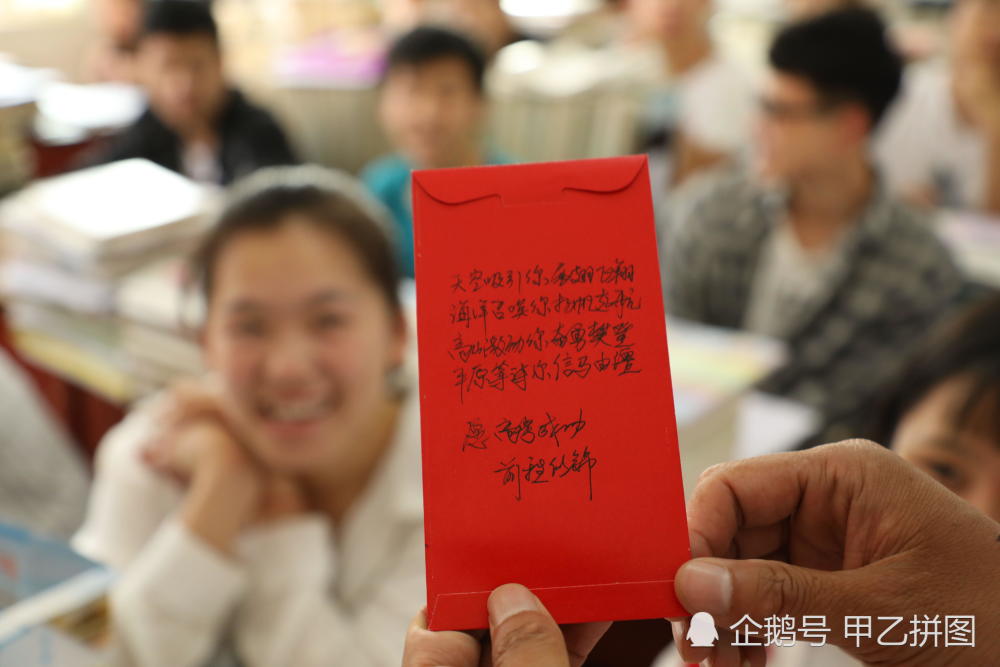 天空吸引你展翅飞翔
海洋召唤你扬帆起航
高山激励你奋勇攀登
平原等待你信马由缰
愿高考成功
前程似锦
企鹅号 甲乙拼图